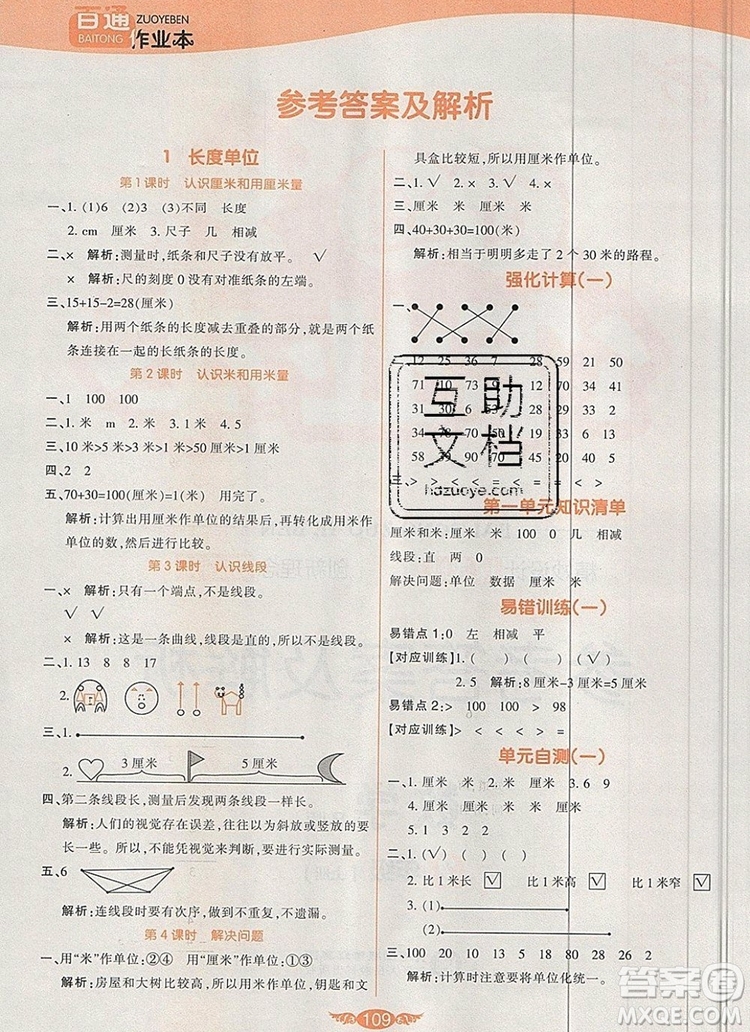 百通
BAITONG
ZUOYEBEN
作业本
参考答案及解析
1 长度单位
第1课时 认识厘米和用厘米量
一、1. (1)6 (2)3 (3)不同 长度
2. cm 厘米 3. 尺子 几 相减
二、× 解析:测量时,纸条和尺子没有放平。 √
× 解析:尺的刻度 0 没有对准纸条的左端。
三、15+15-2=28(厘米)
解析:用两个纸条的长度减去重叠的部分,就是两个纸
条连接在一起的长纸条的长度。
第2课时 认识米和用米量
一、1 100 100
二、1. 米 m 2. 米 3. 厘米 4. 5
三、10 米>5 米>3 米>1 米>50 厘米>10 厘米
四、2 2
五、70+30=100(厘米)=1(米) 用完了。
解析:计算出用厘米作单位的结果后,再转化成用米作
单位的数,然后进行比较。
第3课时 认识线段
一、× 解析:只有一个端点,不是线段。
√ √
× 解析:这是一条曲线,线段是直的,所以不是线段。
二、1. 13 8 8 4
2.
三、1.
2. 3 厘米 5 厘米
四、第二条线段长,测量后发现两条线段一样长。
解析:人们的视觉存在误差,往往以为斜放或竖放的要
长一些。所以,不能凭视觉来判断,要进行实际测量。
五、6
解析:连线段时要有次序,做到不重复,不遗漏。
第4课时 解决问题
一、用“米”作单位:②④ 用“厘米”作单位:①③
解析:房屋和大树比较高,所以用米作单位,钥匙和文
具盒比较短,所以用厘米作单位。
二、1. √ 2. × 3. √ 4. ×
三、厘米 米 米 厘米
四、40+30+30=100(米)
解析:相当于明明多走了 2 个 30 米的路程。
强化计算(一)
一、
二、12 25 36 7 28 59 21 50
71 20 35 64
31 30 6 28 9 40
34 78 20 13 38
58 39 90 70 51 57 52
三、> > < < < = = < >
第一单元知识清单
厘米(cm) 米(m) 100 0 几 相减
线段:直 两 0
解决问题:单位 数据 厘米 米
易错训练(一)
易错点 1:0 左 相减 平
【对应训练】 1. (√) ( ) ( )
2. 5 解析:8 厘米-3 厘米=5 厘米
易错点 2:> 100 100 > 98
【对应训练】 < > < < < <
单元自测(一)
一、1. 厘米 厘米 米 2. 厘米 米 3. 6 9
4. 厘米 厘米 厘米 米
5. 1 3 2 2
二、1. (√) ( ) ( ) ( )
2. 比 1 米长 ☑ 比 1 米高 ☑ 比 1 米窄 ☑
3. (1)
(2)
三、100 20 24 9 50 28 26 2
解析:计算时注意要将单位化统一。
109
互助
文档
hdzuoye.com
答案圈
MXQE.COM